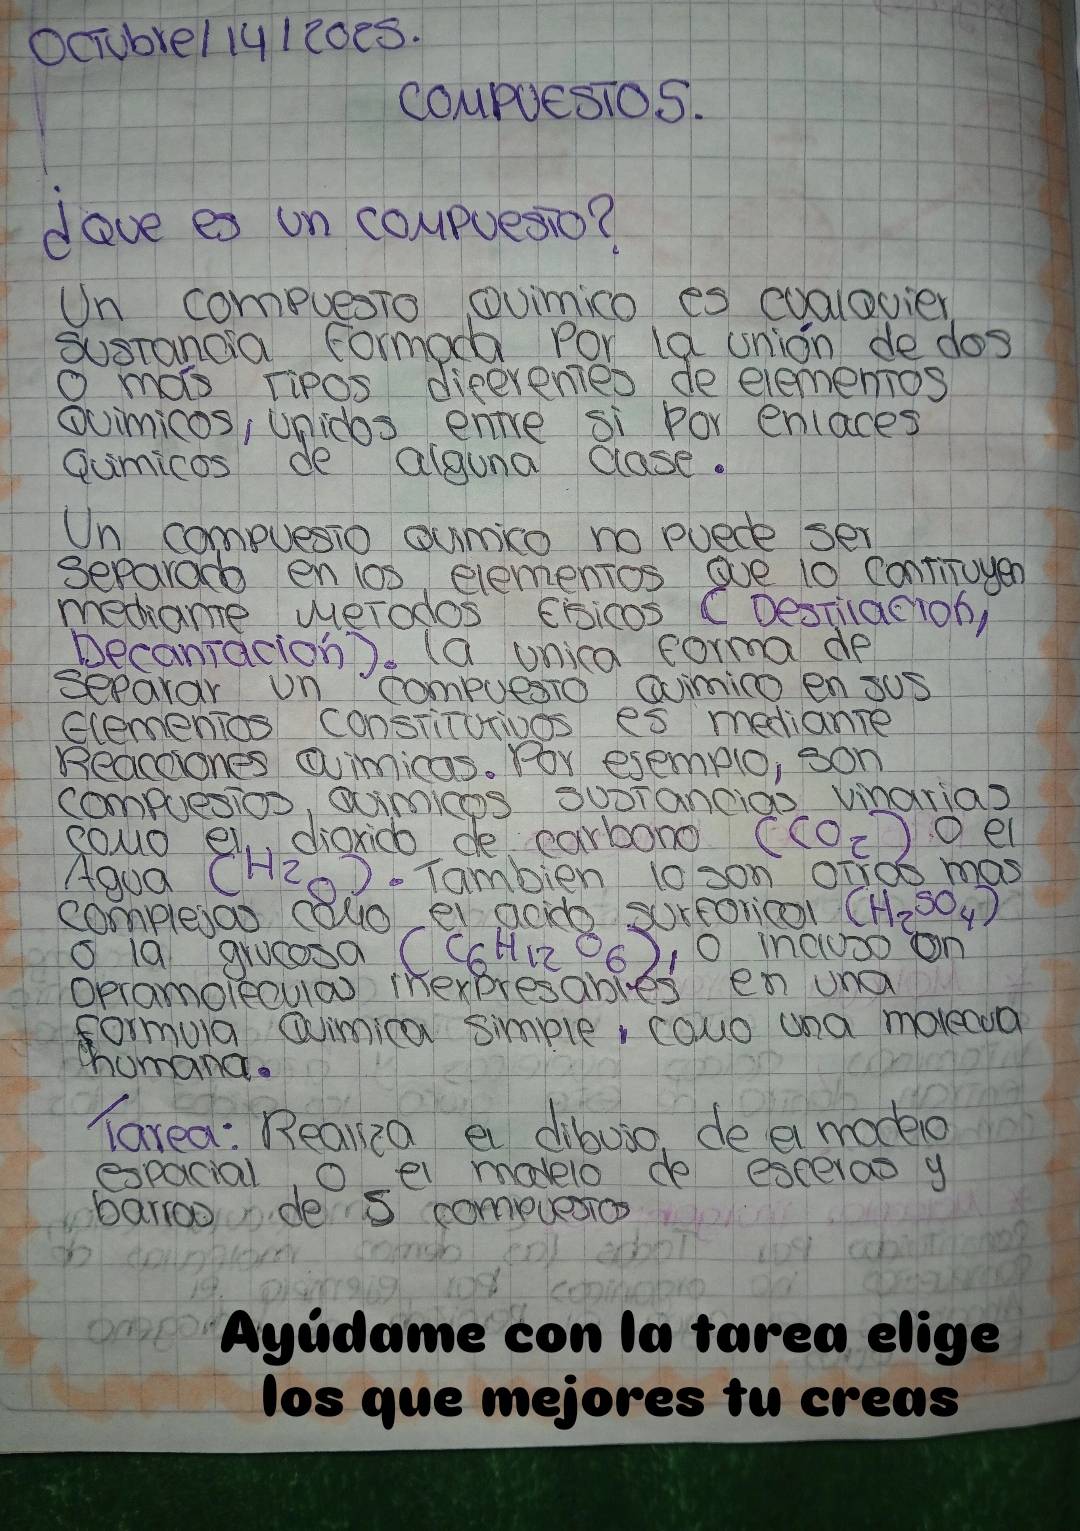 Octubre/14/2025.
COMPUESTOS.
¿Que es un compuesto?
Un compuesto Quimico es cualquier
sustancia formada por la unión de dos
o más tipos diferentes de elementos
Quimicos, unidos entre si por enlaces
Quimicos de alguna clase.
Un compuesto quimico no puede ser
separado en los elementos que lo contituyen
mediante metodos fisicos (Destilación,
Decantación). la unica forma de
separar un compuesto quimico en sus
elementos constitutivos es mediante
Reacciones Quimicas. Por ejemplo, son
compuestos quimicos sustancias vinarias
como el dioxido de carbono (CO2) o el
Agua (H2O). Tambien lo son otros mas
complejas como el acido surforicol (H2SO4)
o la grucosa (C6H12O6), o incluso on
opramoleculas inexpresables en una
formula Quimica simple, como una molecua
humana.
Tarea: Realiza el dibujo de el modelo
espacial o el modelo de esferas y
barras de 5 compuestos
Ayúdame con la tarea elige
los que mejores tu creas